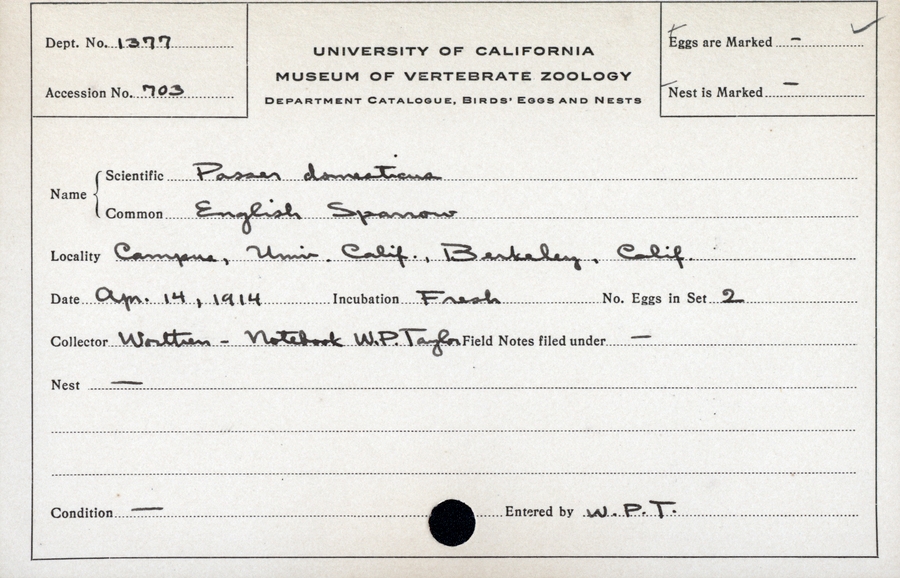 Dept. No. 1377
Accession No. 703
UNIVERSITY OF CALIFORNIA
MUSEUM OF VERTEBRATE ZOOLOGY
DEPARTMENT CATALOGUE, BIRDS' EGGS AND NESTS
Eggs are Marked -
Nest is Marked -
Name { Scientific Passer domesticus
Common English Sparrow
Locality Campus, Univ. Calif., Berkeley, Calif.
Date Apr. 14, 1914 Incubation Fresh No. Eggs in Set 2
Collector Worthen - Notebook W.P. Taylor Field Notes filed under —
Nest —
Condition — Entered by W.P.T.